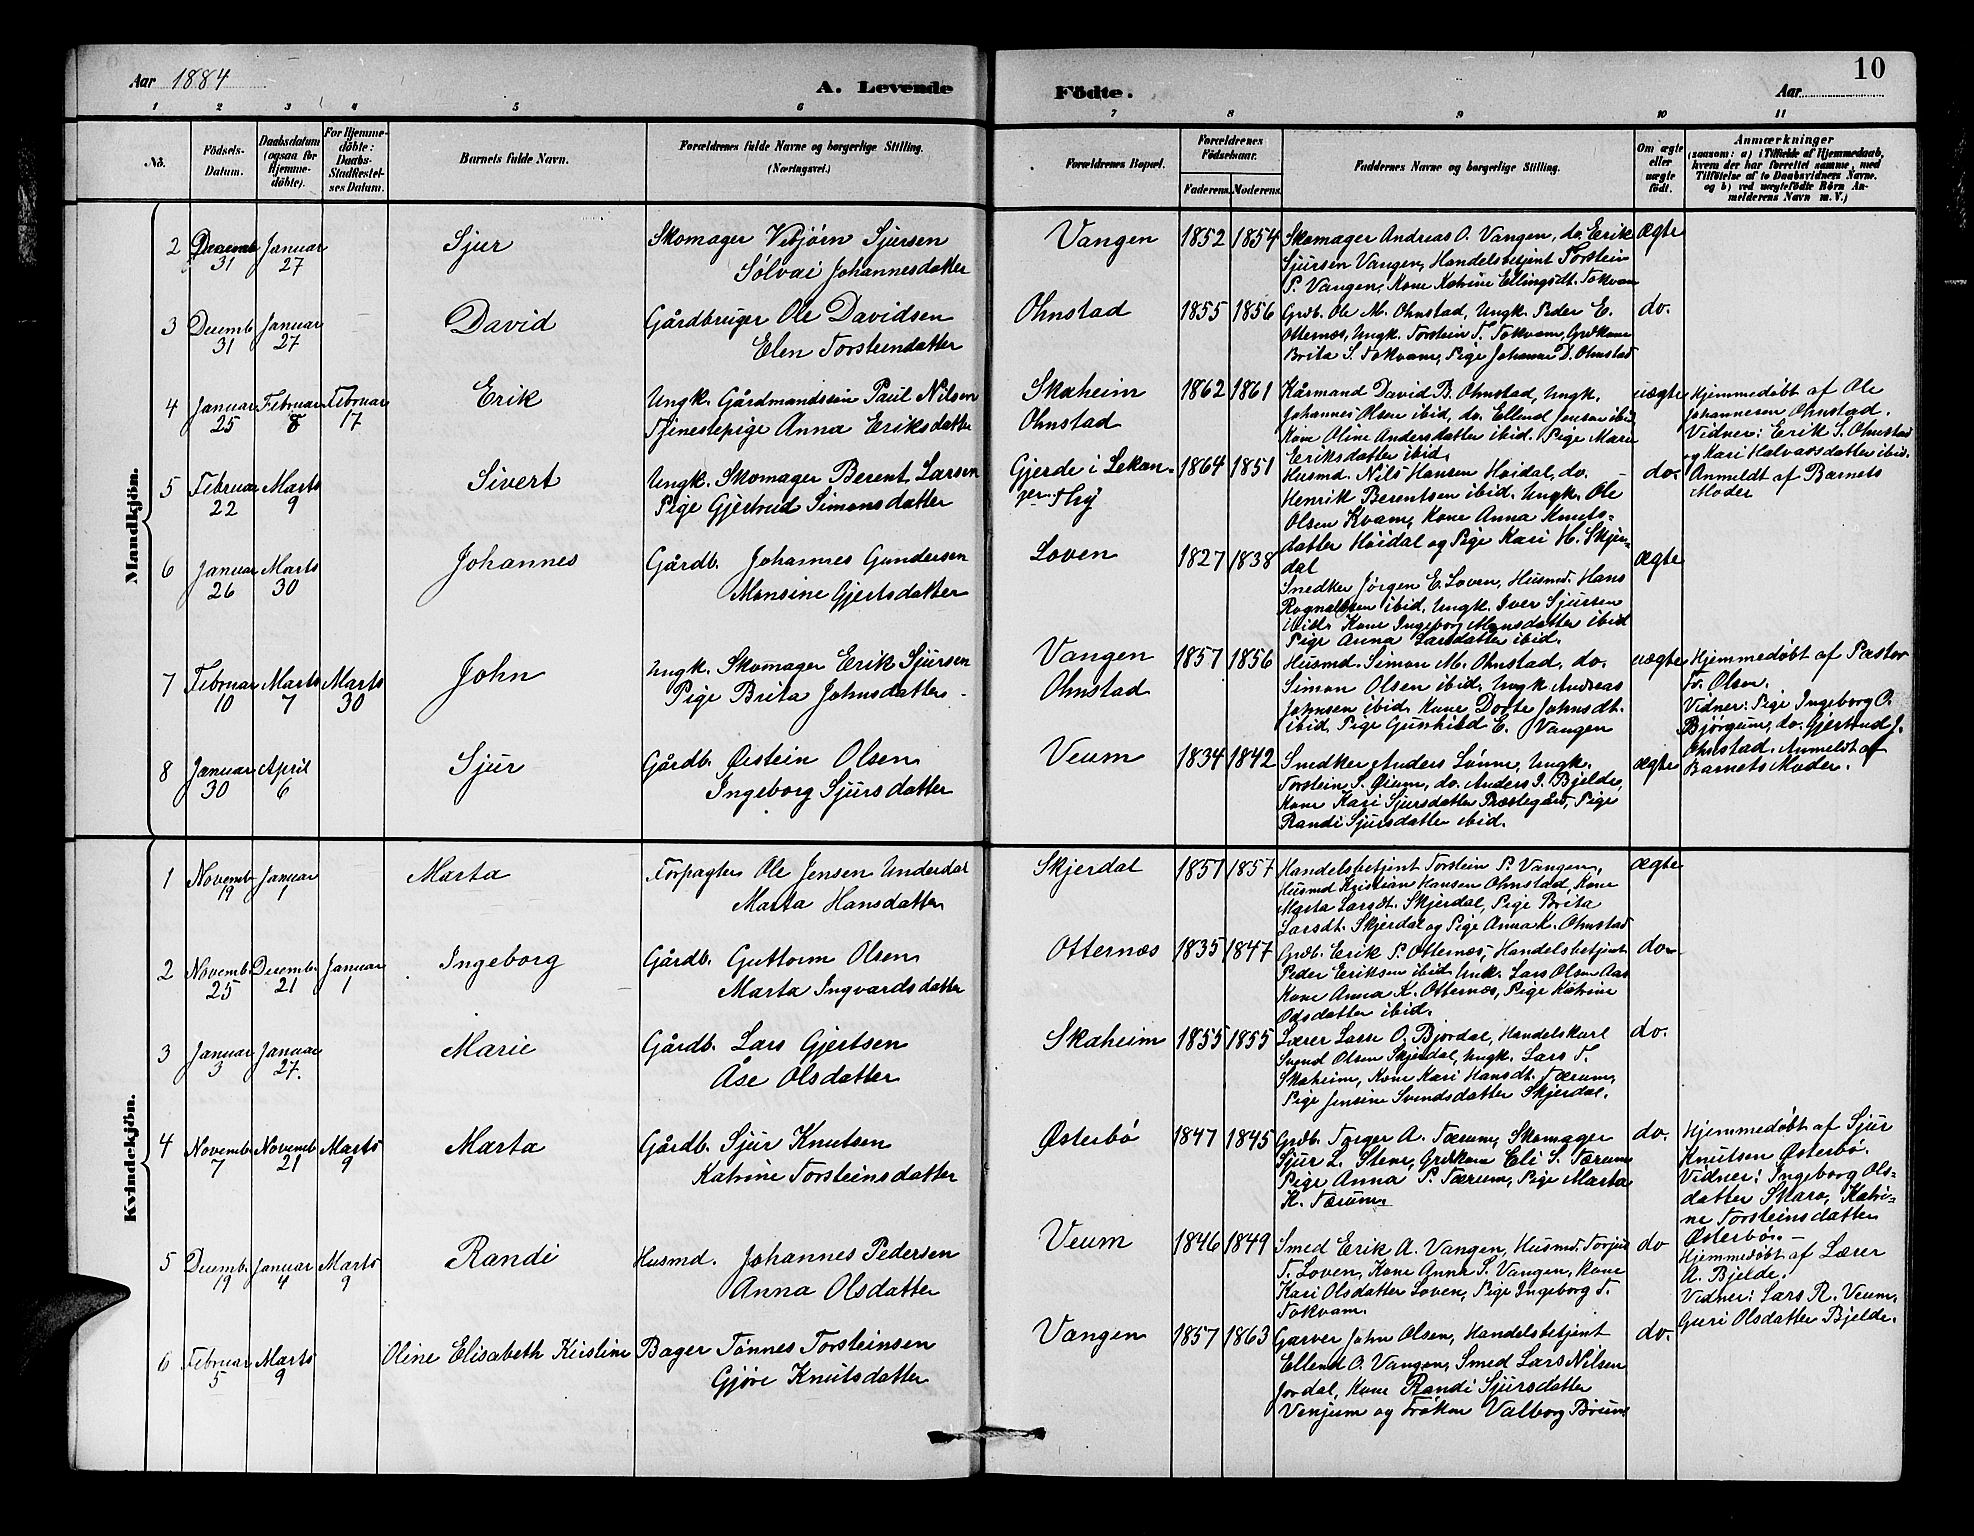 Aar 1884
A. Levende
Födte.
Aar
10
1 2 3 4 5 6 7 8 9 10 11
No.
Födsels-Datum.
Daabsdatum (ogsaa for Hjemme-döbte).
For Hjemme-döbte: Daabs-Stadfæstel-ses Datum.
Barnets fulde Navn.
Forældrenes fulde Navne og borgerlige Stilling. (Næringsvei.)
Forældrenes Bopæl.
Forældrenes Födselsaar.
Faderens. Moderens.
Faddernes Navne og borgerlige Stilling.
Om ægte eller uægte födt.
Anmærkninger
(saasom: a) i Tilfælde af Hjemmedaab,
hvem der har forrettet samme, med
Tilföielse af to Daabsvidners Navne.
og b) ved uægtefödte Börn An-
melderens Navn m. V.)
Mandkjön.
2 Decemb 31 Januar 27 Sjur Skomager Vebjørn Sjursen
Sølvai Johannesdatter
Vangen 1852 1854 Skomager Andreas O. Vangen, do. Erik
Sjursen Vangen, Handelsbetjent Torstein
P. Vangen, Kone Katrine Ellingsdt. Tokvam
ægte
3 Decemb. 31 Januar 27 David Gårdbruger Ole Davidsen
Elen Torsteindatter
Ohnstad 1855 1856 Grdb. Ole M. Ohnstad, Ungk. Peder E.
Otternæs, Ungk. Torstein T. Tokvam, Grdkone
Brita S. Tokvam, Pige Johanne D. Ohnstad
do.
4 Januar 25 Februar 8 Februar 17 Erik Ungk. Gårdmandssøn Paul Nilsen
Tjenestepige Anna Eriksdatter
Skaheim
Ohnstad
1862 1861 Kårmand David B. Ohnstad, Ungk.
Johannes Olsen ibid, do. Ellend Jensen ibid
Kone Oline Andersdatter ibid. Pige Marie
Eriksdatter ibid.
uægte Hjemmedøbt af Ole
Johannesen Ohnstad.
Vidner: Erik S. Ohnstad
og Kari Halvarsdatter ibid.
5 Februar 22 Marts 9 Sivert Ungk. Skomager Berent Larsen
Pige Gjertrud Simonsdatter
Gjerde i Lekan-
ger
1864 1851 Husmd. Nils Hansen Høidal, do. –
Henrik Berentsen ibid. Ungk. Ole
Olsen Kvam, Kone Anna Knuts-
datter Høidal og Pige Kari H. Skjer-
dal
do. Anmeldt af Barnets
Moder
6 Januar 26 Marts 30 Johannes Gårdb. Johannes Gundersen
Monsine Gjertsdatter
Loven 1827 1838
Snedker Jørgen E. Loven, Husmd. Hans
Rognaldsen ibid, Ungk. Iver Sjursen
ibid. Kone Ingeborg Monsdatter ibid
Pige Anna Larsdatter ibid.
ægte
7 Februar 10 Marts 7 Marts 30 John Ungk. Skomager Erik Sjursen
Pige Brita Johnsdatter
Vangen
Ohnstad
1857 1856 Husmd. Simon M. Ohnstad, do.
Simon Olsen ibid. Ungk Andreas
Johnsen ibid. Kone Dorte Johnsdt.
ibid, Pige Gunhild E. Vangen
uægte Hjemmedøbt af Pastor
Fr. Olsen.
Vidner: Pige Ingeborg O.
Bjørgum, do. Gjertrud J.
Ohnstad. Anmeldt af
Barnets Moder.
8 Januar 30 April 6 Sjur Gårdb. Øistein Olsen
Ingeborg Sjursdatter
Veum 1834 1842 Snedker Anders Lønne, Ungk.
Torstein S. Øium, do. Anders I. Bjelde,
Kone Kari Sjursdatter Præstegård, Pige
Randi Sjursdatter ibid.
ægte
Kvindekjön.
1 Novemb 19 Januar 1 Marta Forpagter Ole Jensen Underdal
Marta Hansdatter
Skjerdal 1851 1857 Handelsbetjent Torstein P. Vangen,
Husmd Kristian Hansen Ohnstad, Kone
Marta Larsdt. Skjerdal, Pige Brita
Larsdt. Skjerdal og Pige Anna K. Ohnstad
ægte
2 Novemb. 25 Decemb. 21 Januar 1 Ingeborg Gårdb. Guttorm Olsen
Marta Ingvardsdatter
Otternæs 1835 1847 Grdb. Erik P. Otternæs, Handelsbetjent
Peder Eriksen ibid. Unk. Lars Olsen Aas
Kone Anna K. Otternæs, Pige Katrine
Odsdatter ibid.
do.
3 Januar 3 Januar 27. Marie Gårdb. Lars Gjertsen
Åse Olsdatter
Skaheim 1855 1855 Lærer Lasse O. Bjordal, Handelskarl
Svend Olsen Skjerdal, Ungk. Lars T.
Skaheim, Kone Kari Hansdt. Tærum,
Pige Jensine Svendsdatter Skjerdal.
do.
4 Novemb. 7 Novemb 21 Marts 9 Marta Gårdb. Sjur Knutsen
Katrine Torsteinsdatter
Østerbø 1847 1845 Grdb. Torger A. Tærum, Skomager
Sjur L. Stene, Grdkone Eli S. Tærum
Pige Anna P. Tærum, Pige Marta
K. Tærum.
do. Hjemmedøbt af Sjur
Knutsen Østerbø.
Vidner: Ingeborg Ols-
datter Skaro, Katri-
ne Torsteinsdatter
Østerbø. –
5 Decemb. 19 Januar 4 Marts 9 Randi Husmd. Johannes Pedersen
Anna Olsdatter
Veum 1846 1849 Smed Erik A. Vangen, Husmd. Torjus
T. Loven, Kone Anna S. Vangen, Kone
Kari Olsdatter Loven, Pige Ingeborg T.
Tokvam.
do Hjemmedøbt af Lærer
A. Bjelde.
Vidner: Lars R. Veum,
Guri Olsdatter Bjelde.
6 Februar 5 Marts 9 Oline Elisabeth Kirstine Bager Tønnes Torsteinsen
Gjøre Knutsdatter
Vangen 1857 1863 Garver John Olsen, Handelsbetjent
Ellend O. Vangen, Smed Lars Nilsen
Jordal, Kone Randi Sjursdatter
Venjum og Frøken Valborg Brun
do.